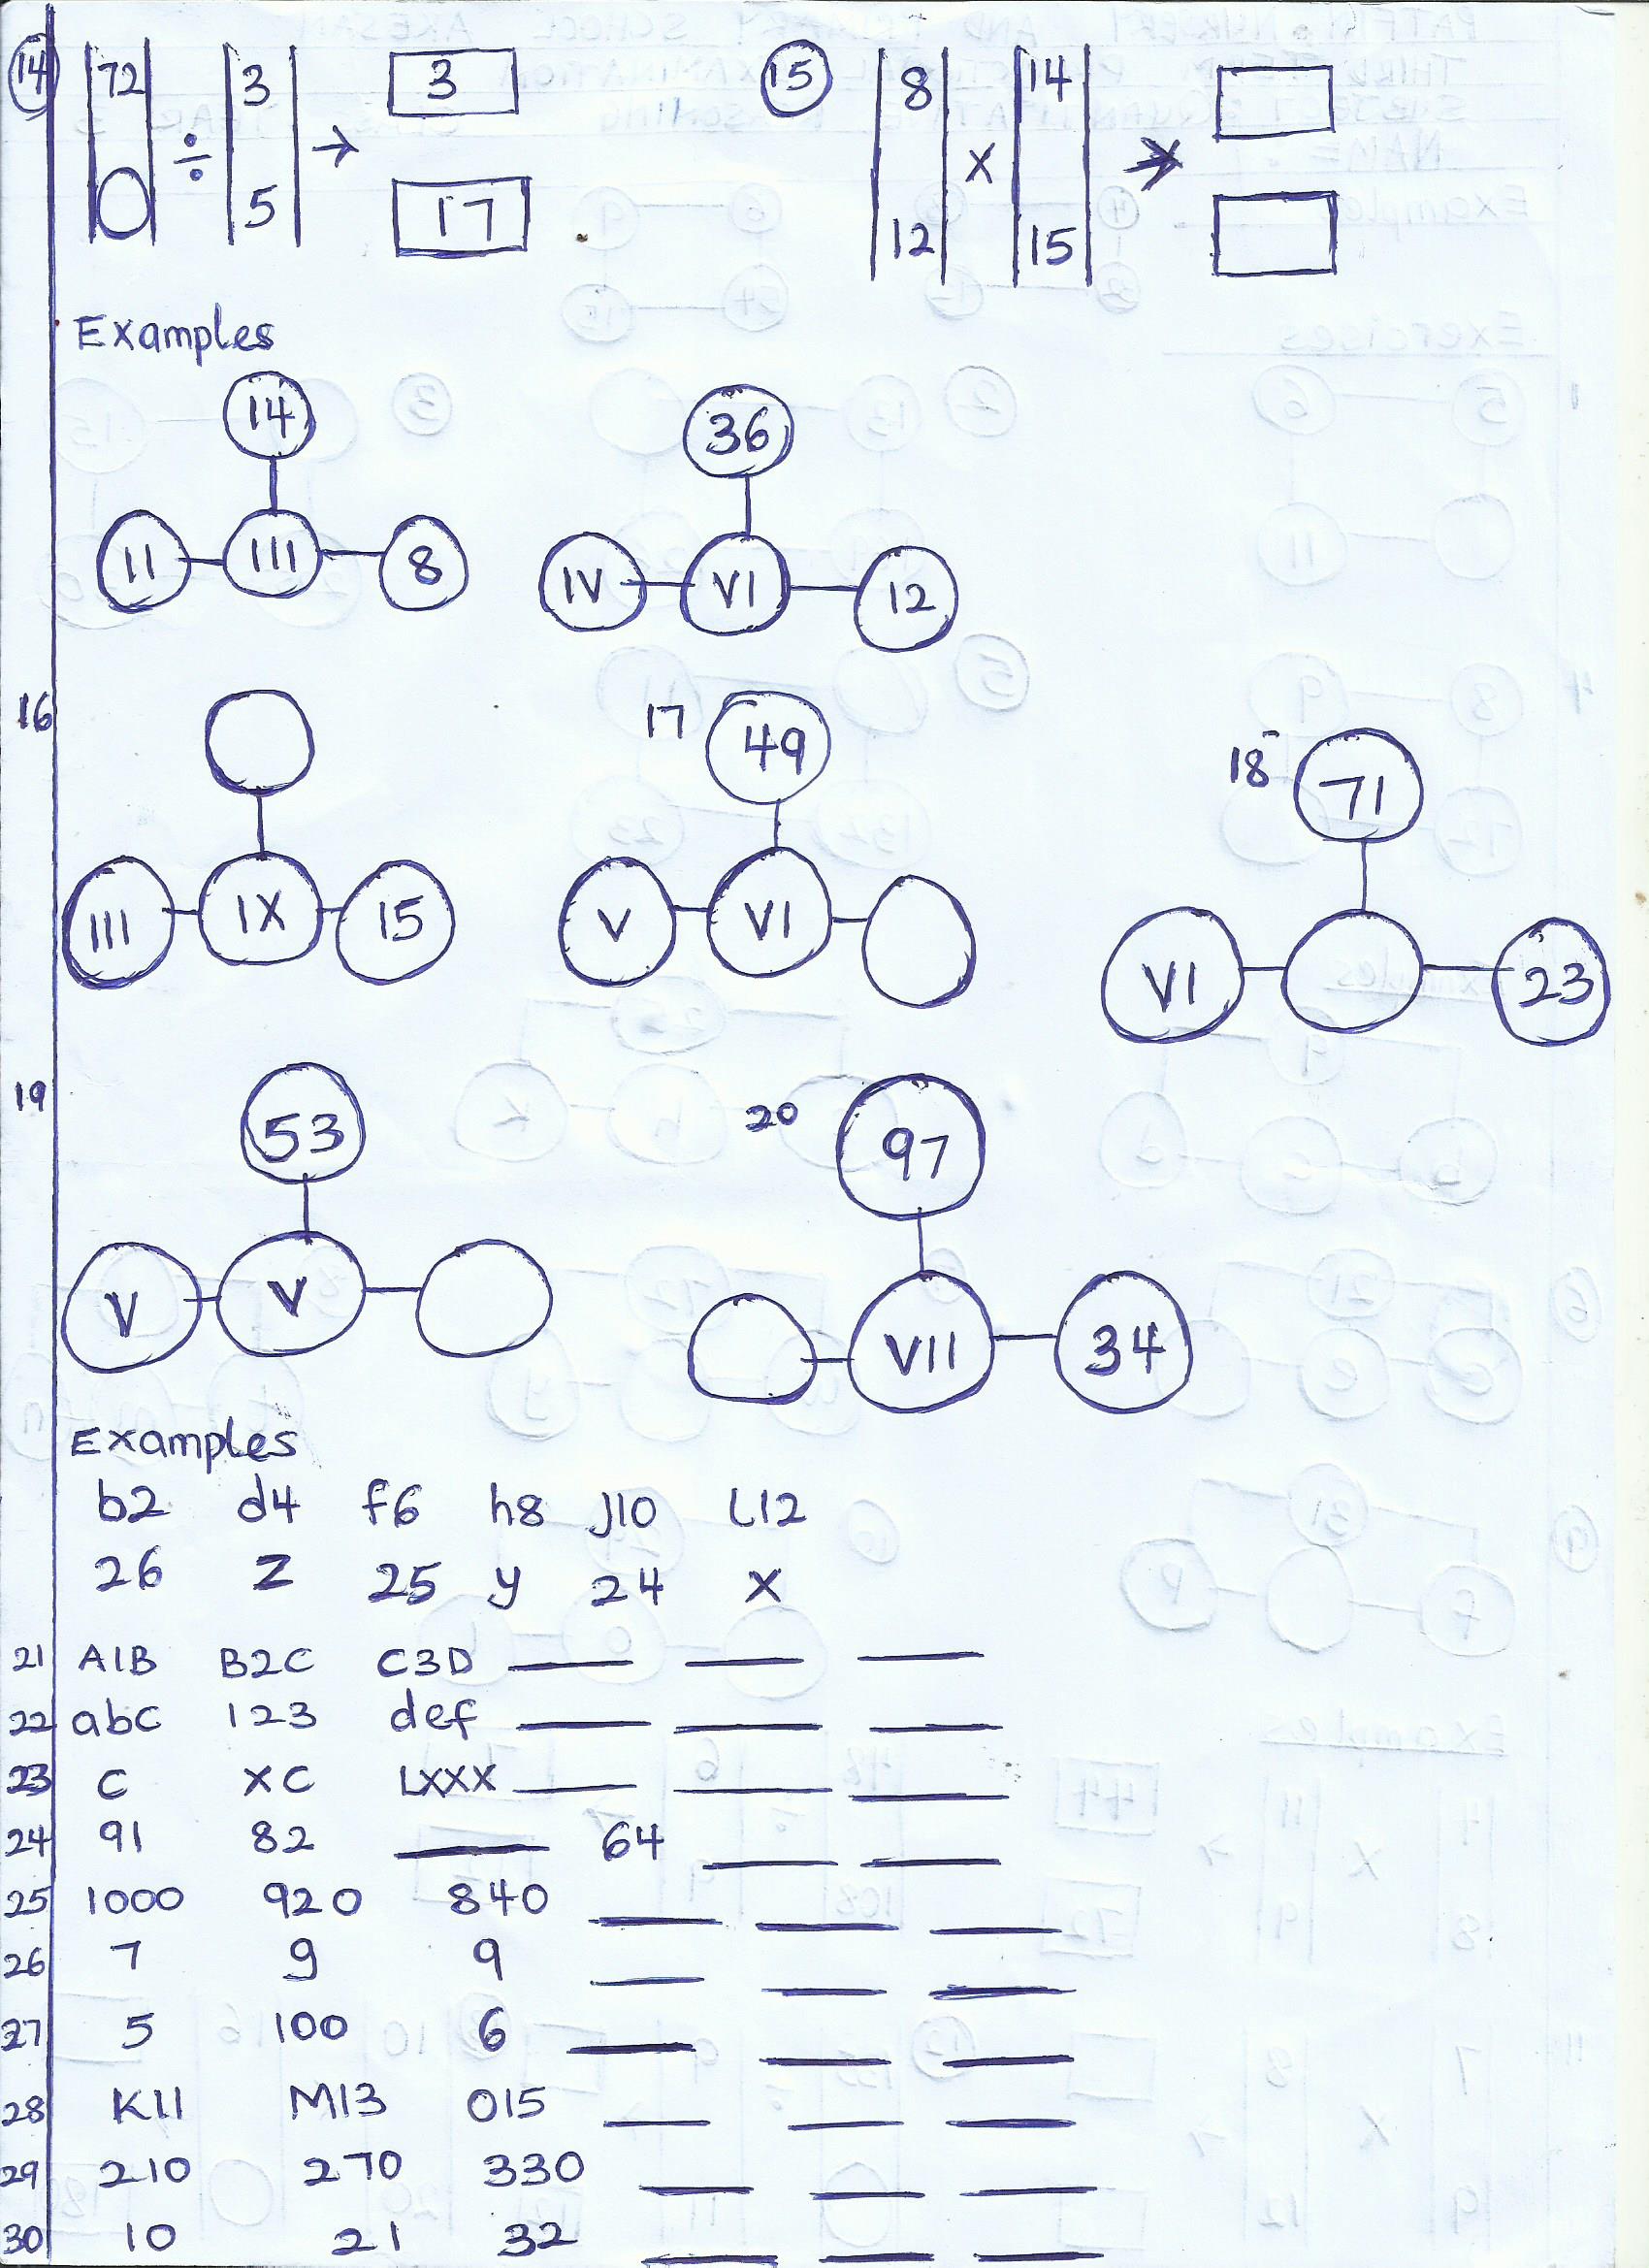 14 72 ÷ 3 → 3
5 17
15 8 x 14 →
12 15
Examples
14 36
II III 8 IV VI 12
16 17 49 18 71
III IX 15 V VI VI 23
19 53 20 97
V V VII 34
Examples
b2 d4 f6 h8 J10 L12
26 Z 25 y 24 X
21 A1B B2C C3D
22 abc 123 def
23 C XC LXXX
24 91 82 64
25 1000 920 840
26 7 9 9
27 5 100 6
28 K11 M13 O15
29 210 270 330
30 10 21 32